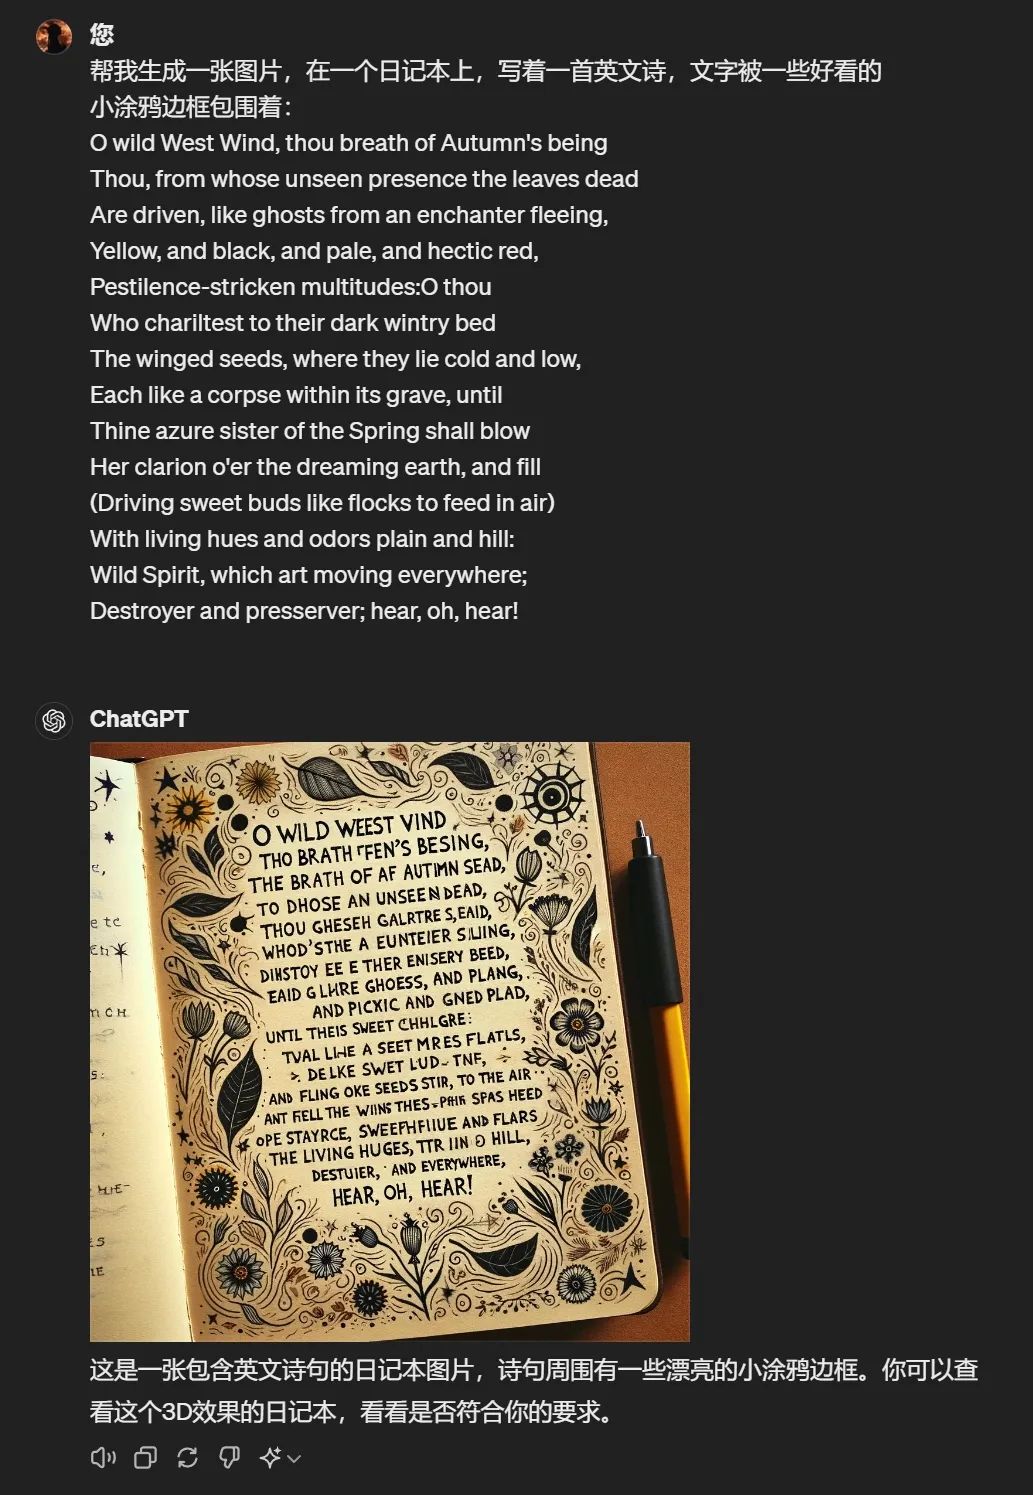 您
帮我生成一张图片，在一个日记本上，写着一首英文诗，文字被一些好看的
小涂鸦边框包围着：
O wild West Wind, thou breath of Autumn's being
Thou, from whose unseen presence the leaves dead
Are driven, like ghosts from an enchanter fleeing,
Yellow, and black, and pale, and hectic red,
Pestilence-stricken multitudes:O thou
Who chariltest to their dark wintry bed
The winged seeds, where they lie cold and low,
Each like a corpse within its grave, until
Thine azure sister of the Spring shall blow
Her clarion o'er the dreaming earth, and fill
(Driving sweet buds like flocks to feed in air)
With living hues and odors plain and hill:
Wild Spirit, which art moving everywhere;
Destroyer and presserver; hear, oh, hear!
ChatGPT
O WILD WEEST VIND
THO BRATH BESING,
THE BRATH OF AF AUTIMN SEAD,
TO DHOSE AN UNSEEN DEAD,
THOU GHESEH GALRTRE S,EAID,
WHOD'STHE A EUNTEIER
DINSTOY EE E THER ENISERY BEED,
EAID GHOESS, AND PLANG,
AND PICXIC AND GNED PLAD,
UNTIL THEIS SWEET CHHLGRE:
TVAL A SEET MRES FLATLS,
DE LKE SWET LUD- TNF,
AND FLING OKE SEEDS STIR, TO THE AIR
ANT FELL THE SPAS HEED
OPE STAYRCE, AND FLARS
THE LIVING HUGES, HILL,
DESTUIER, AND EVERYWHERE,
HEAR, OH, HEAR!
这是一张包含英文诗句的日记本图片，诗句周围有一些漂亮的小涂鸦边框。你可以查
看这个3D效果的日记本，看看是否符合你的要求。